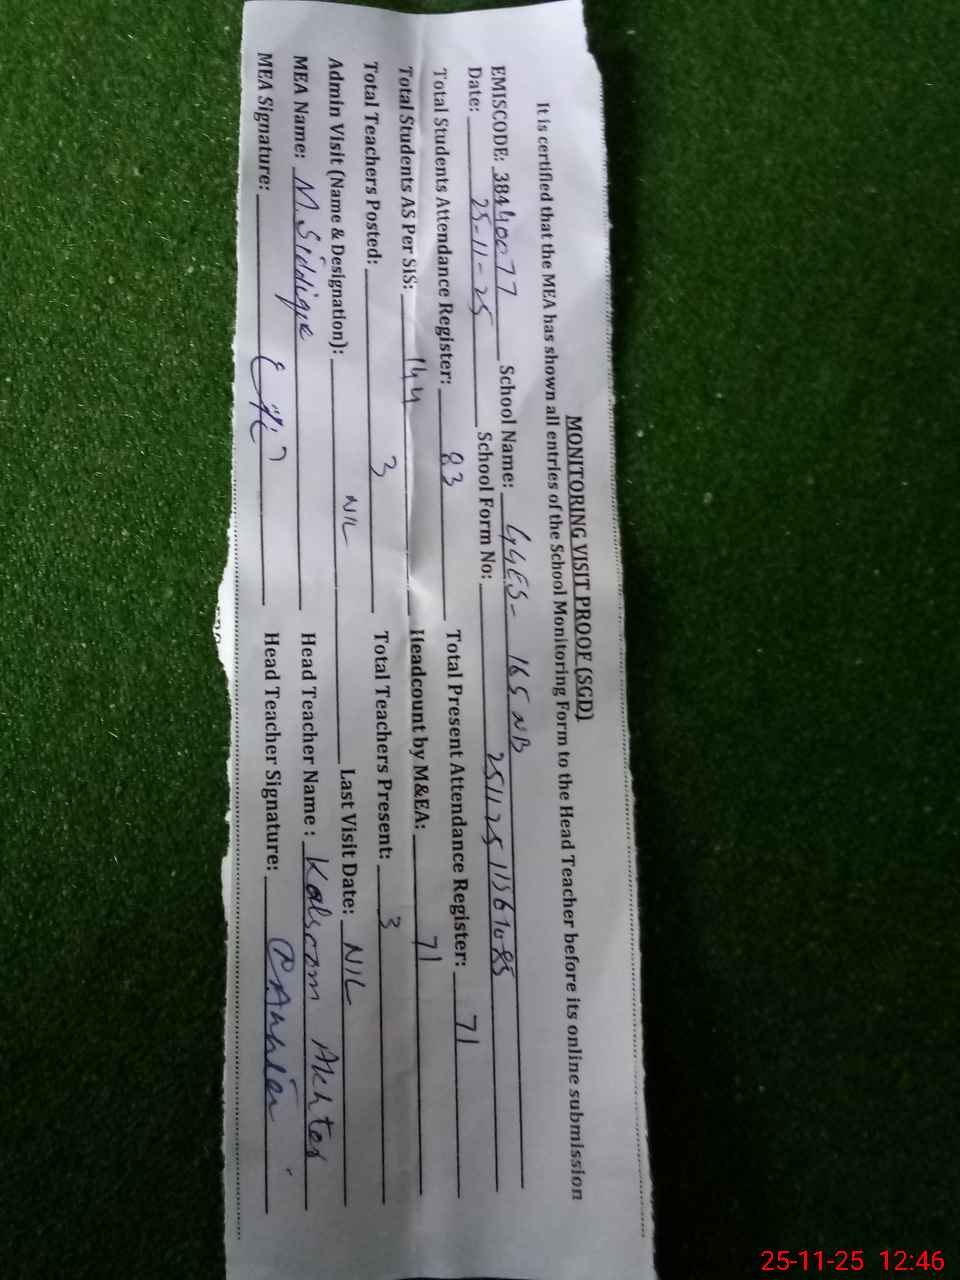 MONITORING VISIT PROOF (SGD)
It is certified that the MEA has shown all entries of the School Monitoring Form to the Head Teacher before its online submission
EMISCODE: 38440077 School Name: GGES- 165 NB
Date: 25-11-25 School Form No: 25112511361085
Total Students Attendance Register: 83 Total Present Attendance Register: 71
Total Students AS Per SIS: 144 Headcount by M&EA: 71
Total Teachers Posted: 3 Total Teachers Present: 3
Admin Visit (Name & Designation): NIL Last Visit Date: NIL
MEA Name: M. Siddique Head Teacher Name : Kalsoom Akhter
MEA Signature: Head Teacher Signature:
25-11-25 12:46